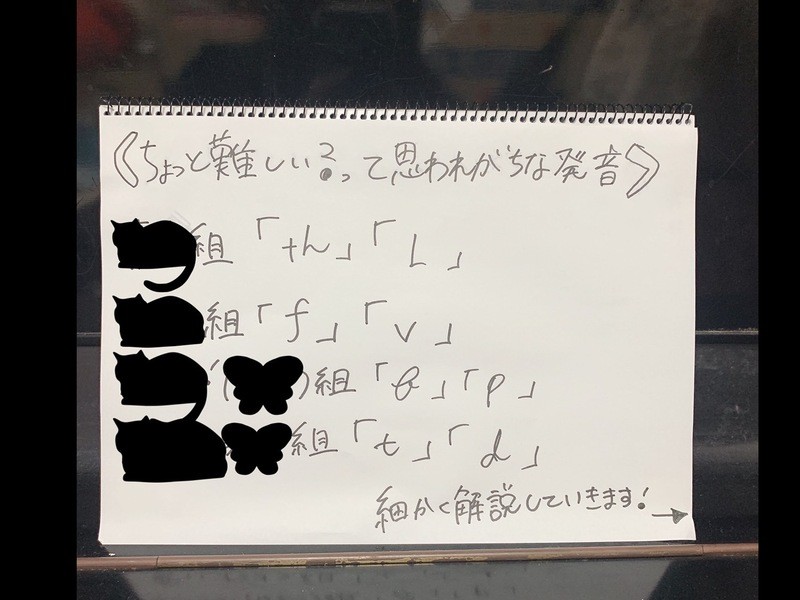 《ちょっと難しい?って思われがちな発音》
組「th」「L」
組「f」「v」
組「b」「p」
組「t」「d」
細かく解説していきます!→